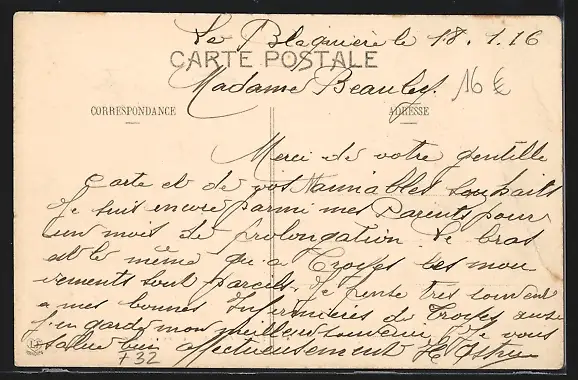 La Blaquière le 18.1.16
CARTE POSTALE
Madame Beauley.
16 €
CORRESPONDANCE
ADRESSE
Merci de votre gentille
Carte et de vos aimables souhaits
Je suis encore parmi mes Parents pour
un mois de prolongation. Le bras
est le même qu'a Troyes les mou
vements sont pareils. Je pense très souvent
a mes bonnes Infirmières de Troyes aussi
j'en garde mon meilleur souvenir. Je vous
salue bien affectueusement
+32